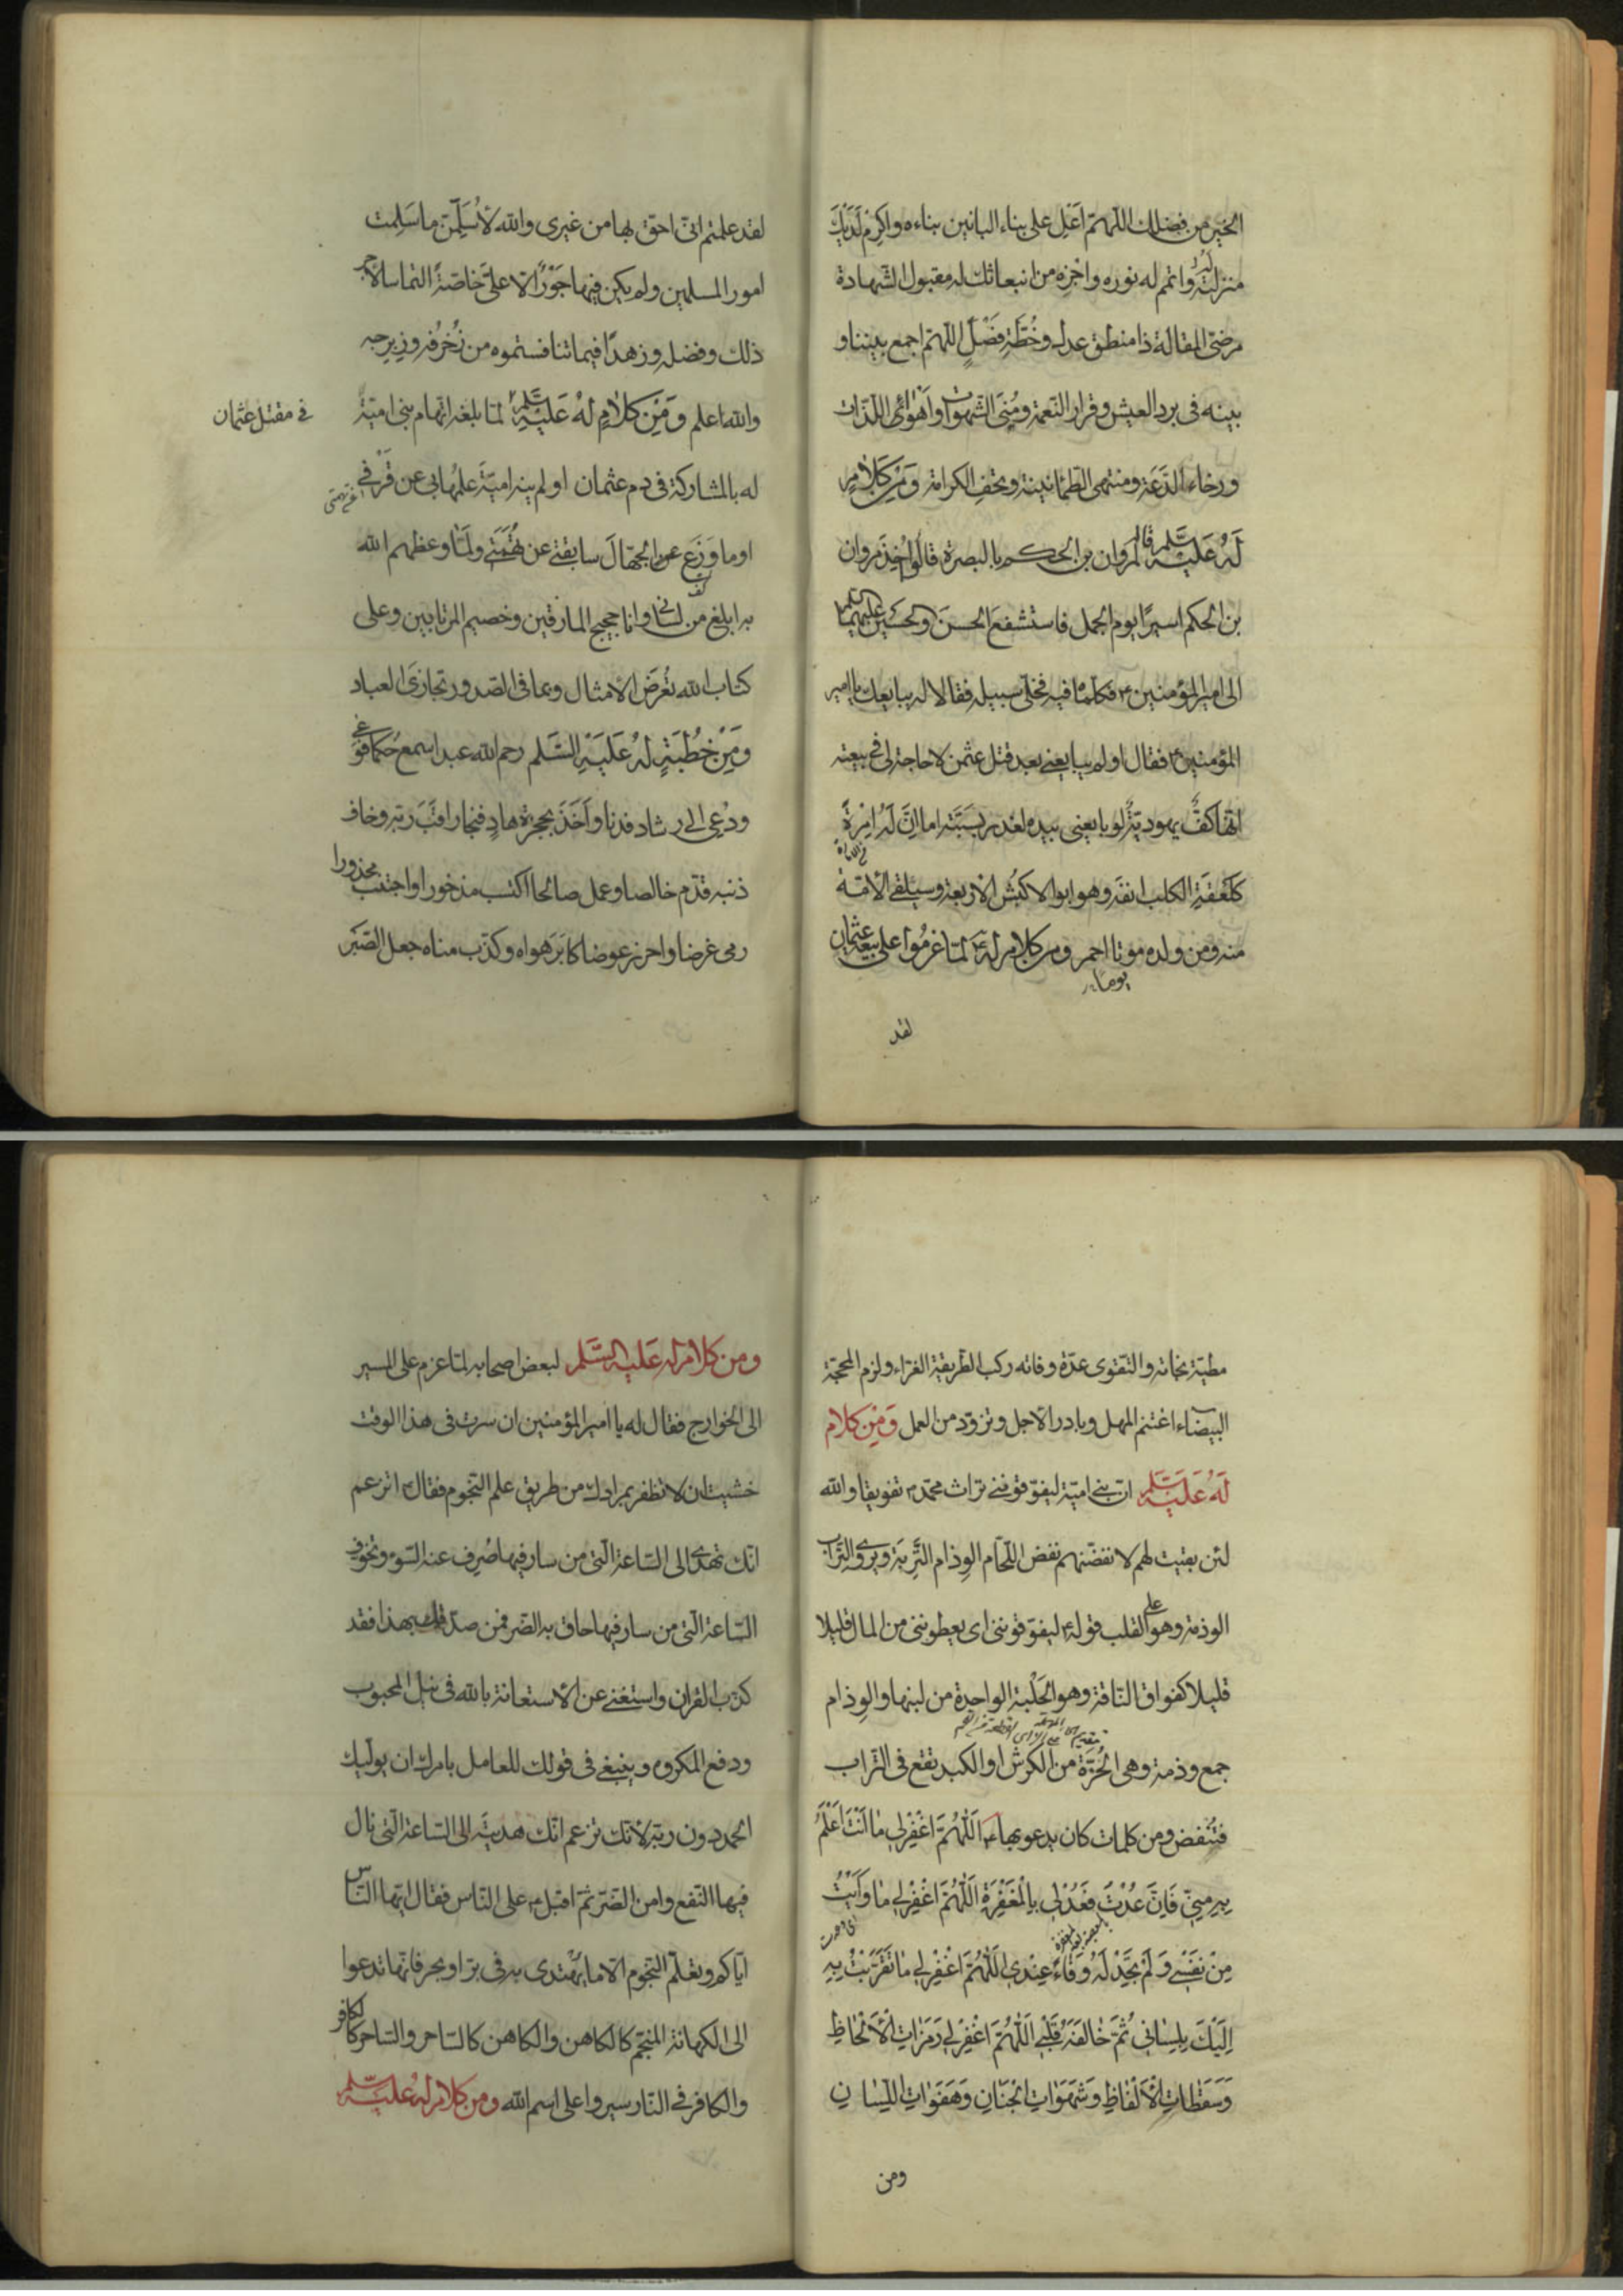 الخير من فضلك اللهمّ اَعْلِ على بناء البانين بناءه واَكرِم لَدَيكَ
منزلته واتمم له نوره واجْزِه من انبعاثك له مقبول الشهادة
مرضىّ المقالة ذا منطق عدل وخُطَّةِ فَضْلٍ اللهمّ اجمع بيننا و
بينه فى برد العيش وقرار النعمة ومُنَى الشهوات واَهْوَاءِ اللذّات
ورخاء الدَّعَة ومنتهى الطّمانينة وتحف الكرامة وَمِنْ كَلَامٍ
لَهُ عَلَيْهِ السَّلم قاله لمروان بن الحكم بالبصرة قالوا اُخِذَ مروان
بن الحكم اسيرًا يوم الجمل فاستشفعَ الحسنَ والحسين عليهما السلم
الى امير المؤمنين ع فكلّماه فيه فخلّى سبيله فقالا له يبايعك يا امير
المؤمنين ع فقال اولم يبايعنى بعد قتل عثمن لا حاجة لى فى بيعته
انّها كفٌّ يهوديّةٌ لو بايعنى بيده لغدر بِسَبَّتِه اما انّ لَهُ اِمْرَةً
كلَعقَةِ الكلب انفَه وهو ابو الاكبُش الاربعة وسيلقى الاُمّة
منه ومن ولده موتا احمر ومن كلام له ع لمّا عزموا على بيعة عثمان
يوما
لقد
لقد علمتم انّى احقّ بها من غيرى والله لاُسَلِّمَنّ ما سَلِمت
امور المسلمين ولم يكن فيها جَوْرٌ الّا علىّ خاصّةً التماسا لاجر
ذلك وفضله وزهدًا فيما تنافستموه من زُخرُفه وزِبرِجه
والله اعلم وَمِنْ كَلَامٍ لَهُ عَلَيْهِ السَّلم لمّا بلغه اتّهام بنى اميّة
فى مقتل عثمان
له بالمشاركة فى دم عثمان اولم ينه اميّةَ علمُها بى عن قَرْفى
اوما وَزَعَ الجهّالَ سابقتى عن تُهَمَتى ولَمَا وعظهم الله
به ابلغ من لسانى وانا حجيج المارقين وخصيم المرتابين وعلى
كتاب الله تُعرَض الامثال وبما فى الصدور تجازى العباد
وَمِنْ خُطْبَةٍ لَهُ عَلَيْهِ السَّلم رحم الله عبدا سمع حُكما فوَعى
ودُعِى الى رشاد فدنا واَخَذَ بحجزة هادٍ فنجا راقَبَ ربّه وخاف
ذنبه قدّم خالصا وعمل صالحا اكتسب مذخورا واجتنب محذورا
رمى غرضا واحرز عوضا كابَرَ هواه وكذّب مناه جعل الصّبَر
مطيّة نجاته والتّقوى عدّة وفاته ركب الطريقة الغرّاء ولزم المحجّة
البيضاء اغتنم المهل وبادر الاجل وتزوّد من العمل وَمِنْ كلام
لَهُ عَلَيْهِ السَّلم انّ بنى اميّة ليفوّقوننى تراث محمّد ص تفويقا والله
لئن بقيت لهم لانفضنّهم نفض اللّحّام الوِذام التَّرِبَة ويروى التّراب
الوذمة وهو على القلب قوله ع ليفوّقوننى اى يعطوننى من المال قليلا
قليلا كفواق النّاقة وهو الحَلْبة الواحدة من لبنها والوِذام
جمع وذمة وهى الحُزّة من الكَرِش او الكبد تقع فى التراب
فتُنفض ومن كلمات كان يدعو بها ع اَللّٰهُمَّ اغْفِرْلِى مَا اَنْتَ اَعْلَمُ
بِهِ مِنِّى فَاِنْ عُدْتُ فَعُدْ لِى بِالْمَغْفِرَةِ اَللّٰهُمَّ اغْفِرْلِى مَا وَاَيْتُ
مِنْ نَفْسِى وَلَمْ تَجِدْ لَهُ وَفَاءً عِنْدِى اَللّٰهُمَّ اغْفِرْلِى مَا تَقَرَّبْتُ بِهِ
اِلَيْكَ بِلِسَانِى ثُمَّ خَالَفَهُ قَلْبِى اَللّٰهُمَّ اغْفِرْلِى رَمَزَاتِ الْاَلْحَاظِ
وَسَقَطَاتِ الْاَلْفَاظِ وَشَهَوَاتِ الْجَنَانِ وَهَفَوَاتِ اللِّسَانِ
ومن
ومن كلام له عَلَيهِ السَّلم لبعض اصحابه لمّا عزم على المسير
الى الخوارج فقال له يا امير المؤمنين ان سرت فى هذا الوقت
خشيت ان لا تظفر بمرادك من طريق علم النّجوم فقال ع اتزعم
انّك تهدى الى السّاعة الّتى من سار فيها صُرِف عنه السّوء وتخوّف
السّاعة الّتى من سار فيها حاق به الضّر فمن صدّقك بهذا فقد
كذّب القرآن واستغنى عن الاستعانة بالله فى نيل المحبوب
ودفع المكروه وينبغى فى قولك للعامل بامرك ان يوليك
الحمد دون ربّه لانّك تزعم انّك هديته الى السّاعة الّتى نال
فيها النّفع وامن الضّرّ ثمّ اقبل ع على النّاس فقال ايّها النّاس
ايّاكم وتعلّم النّجوم الّا ما يُهتدى به فى برّ او بحر فانّها تدعوا
الى الكهانة المنجّم كالكاهن والكاهن كالسّاحر والسّاحر كالكافر
والكافر فى النّار سيروا على اسم الله ومن كلام له عليه السّلم